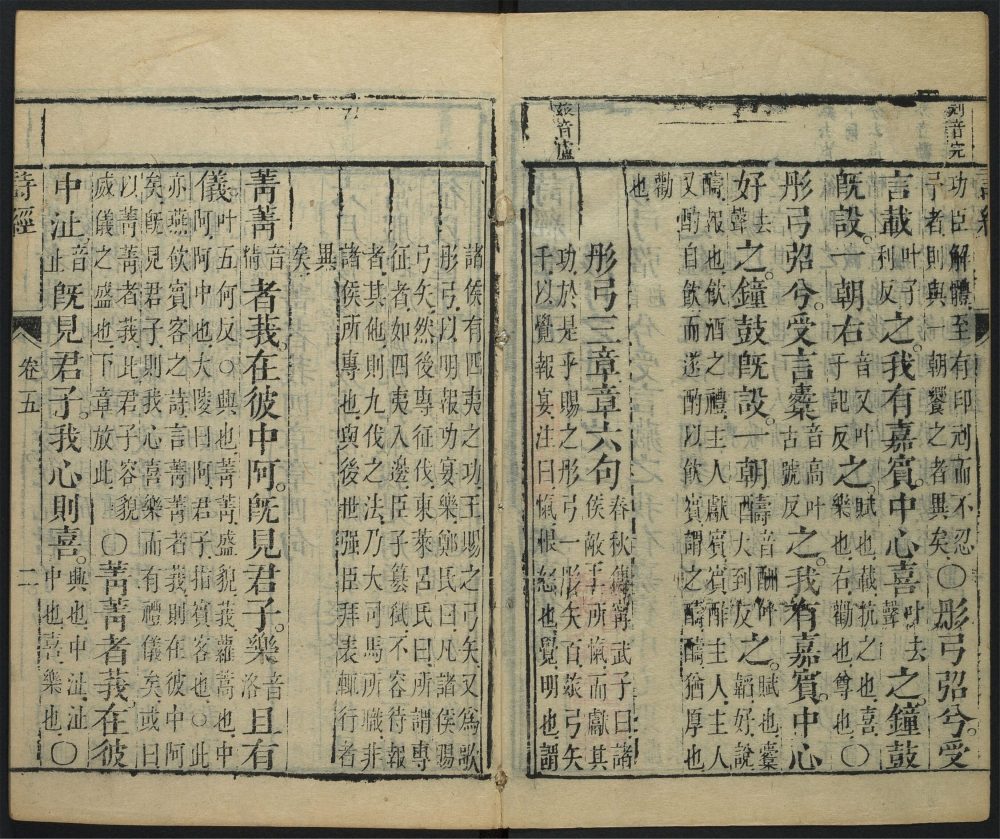 刓音完
功臣解體至有印刓而不忍
予者則與一朝饗之者異矣○彤弓弨兮受
言載叶子利反之我有嘉賓中心喜叶去聲之鐘鼓
既設一朝右音又叶于記反之賦也載抗之也喜樂也右勸也尊也○
彤弓弨兮受言櫜音高叶古號反之我有嘉賓中心
好去聲之鐘鼓既設一朝醻音酬叶大到反之賦也櫜韜好說
醻報也飲酒之禮主人獻賓賓酢主人主人
又酌自飲而遂酌以飲賓謂之醻醻猶厚也
勸也
彤弓三章章六句春秋傳甯武子曰諸侯敵王所愾而獻其
功於是乎賜之彤弓一彤矢百玈弓矢
千以覺報宴注曰愾恨怒也覺明也謂
玈音盧
諸侯有四夷之功王賜之弓矢又爲歌
彤弓以明報功宴樂鄭氏曰凡諸侯賜
弓矢然後專征伐東萊呂氏曰所謂專
征者如四夷入邊臣子篡弒不容待報
者其他則九伐之法乃大司馬所職非
諸侯所專也與後世强臣拜表輒行者
異矣
菁菁音精者莪在彼中阿既見君子樂音洛且有
儀叶五何反○興也菁菁盛貌莪蘿蒿也中
阿阿中也大陵曰阿君子指賓客也○此
亦燕飲賓客之詩言菁菁者莪則在彼中阿
矣既見君子則我心喜樂而有禮儀矣或曰
以菁菁者莪比君子容貌
威儀之盛也下章放此○菁菁者莪在彼
中沚音止既見君子我心則喜興也中沚沚中也喜樂也○
詩經 卷五 二